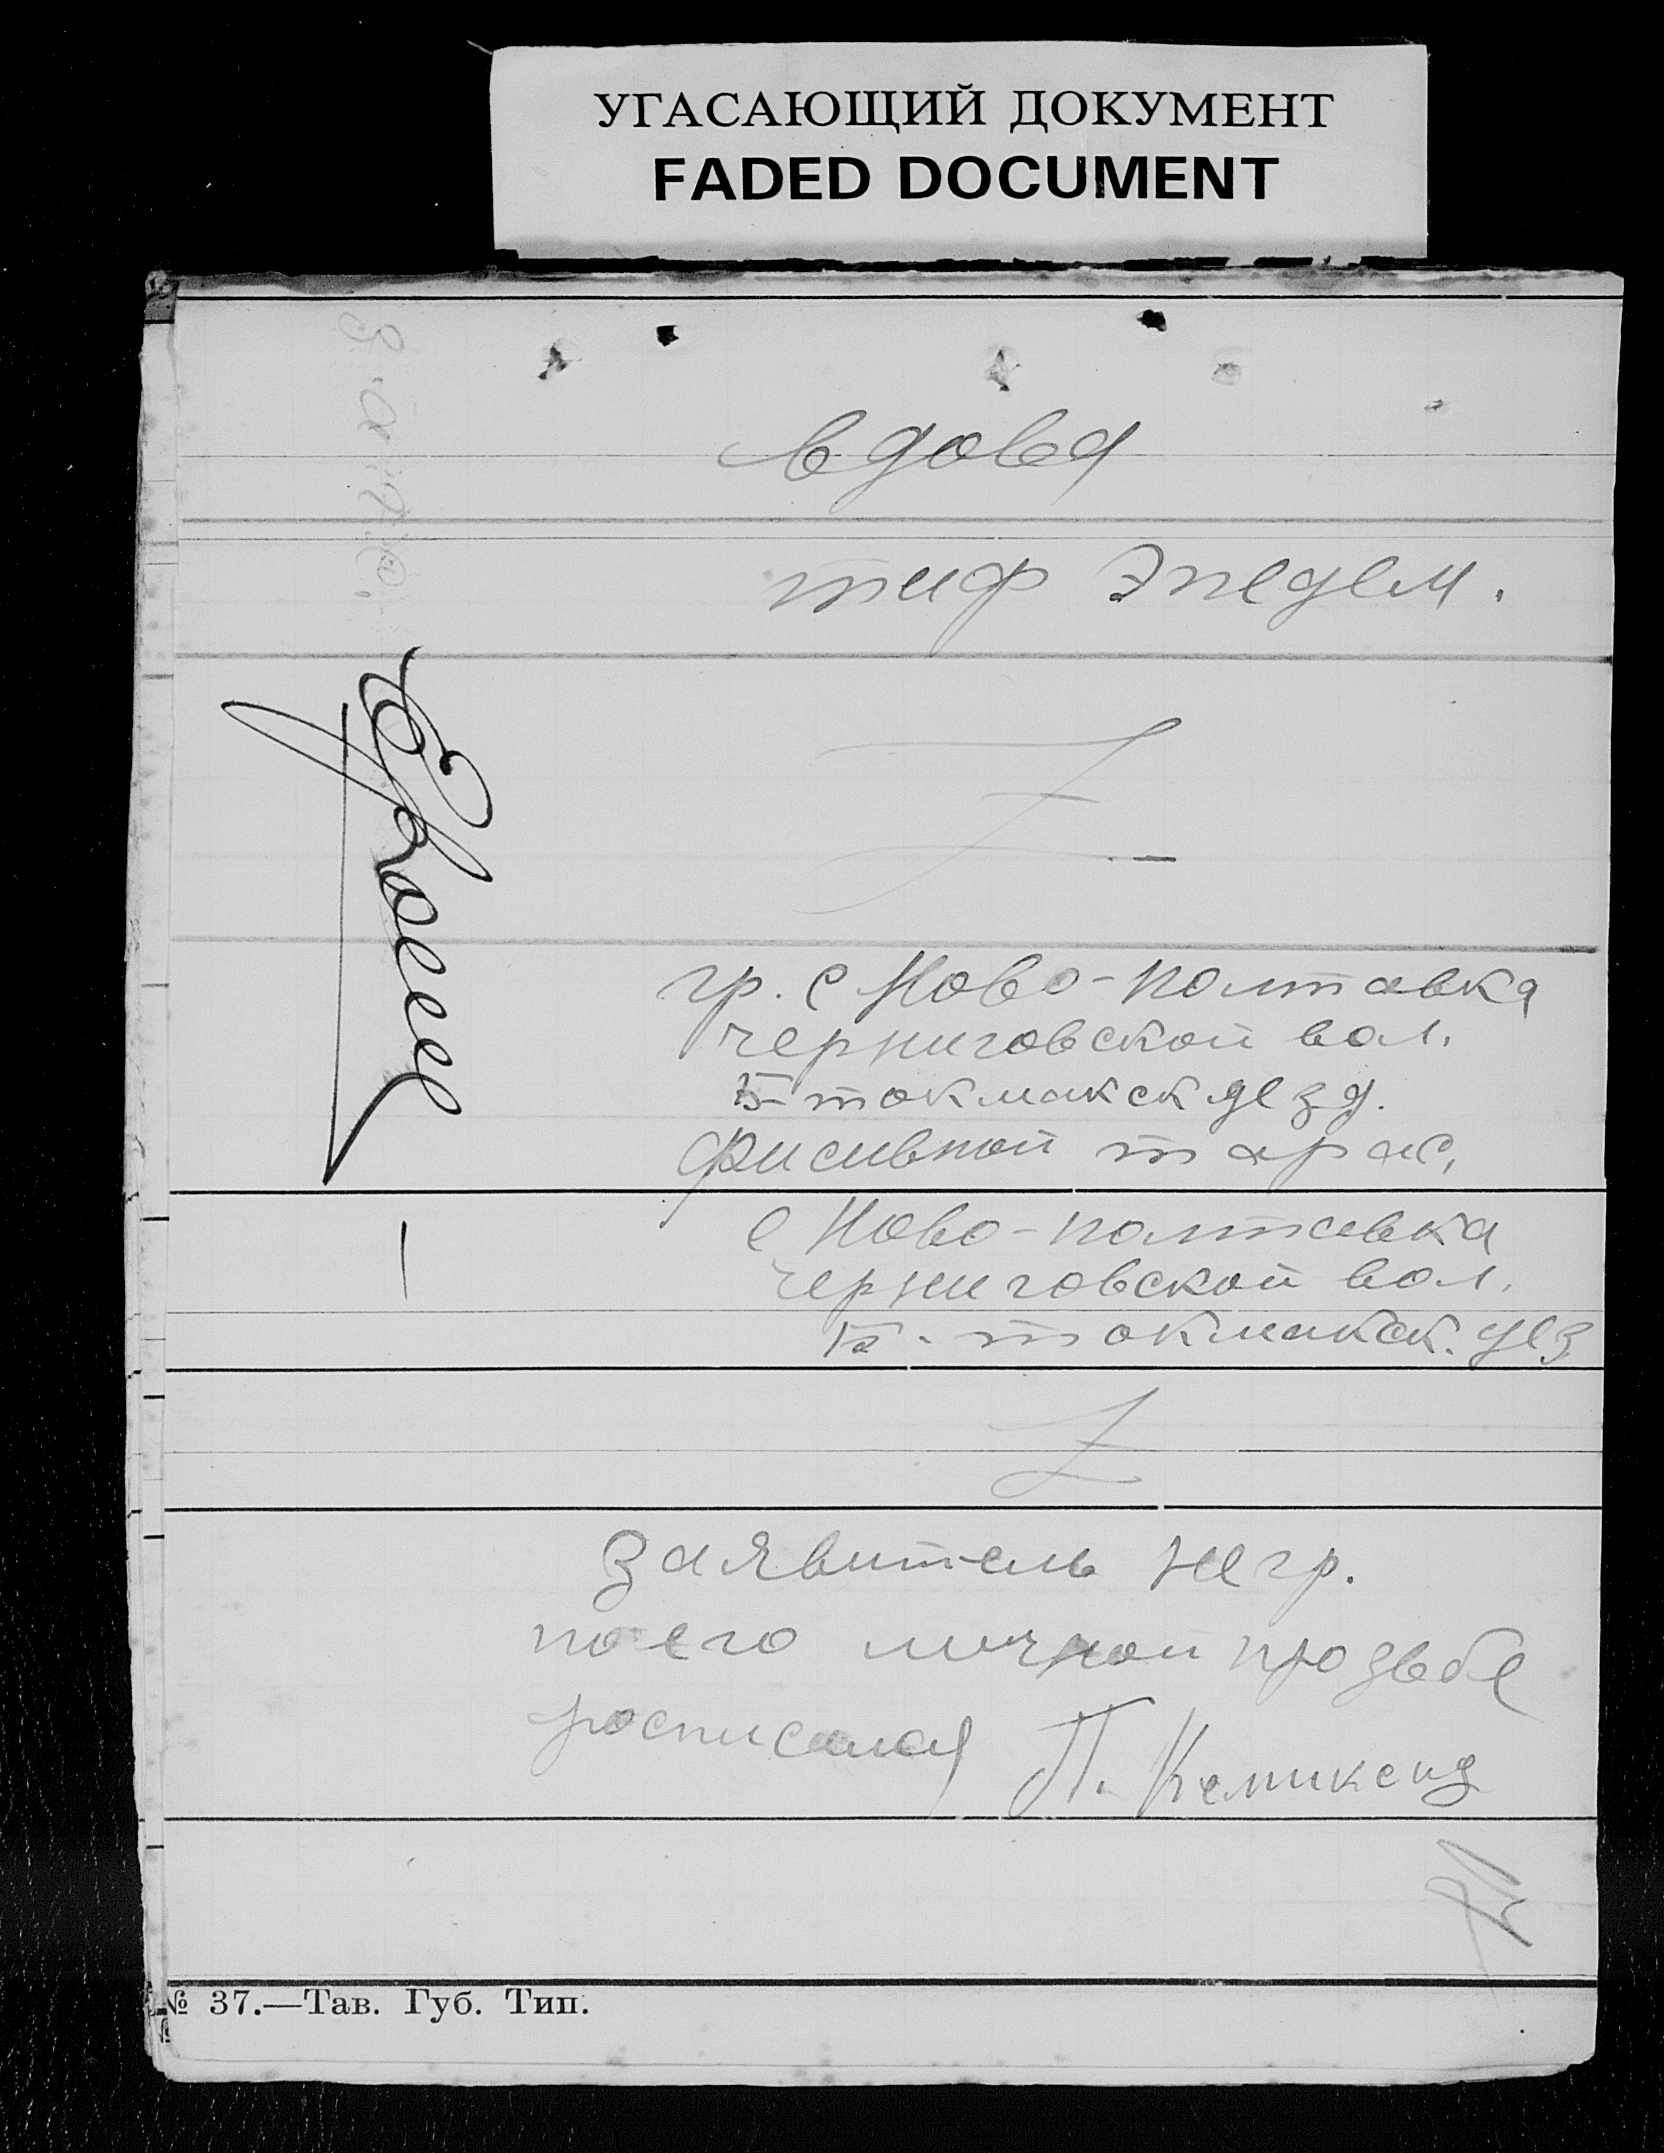 УГАСАЮЩИЙ ДОКУМЕНТ
FADED DOCUMENT
вдова
тиф эпедем.
гр. с Ново-полтавка
черниговской вол.
Б-токмакск уезд.
Фисивной тарас,
с Ново-полтавка
черниговской вол.
Б. токмакск. уез
заявитель негр.
по его личной прозьбе
росписался П.
№ 37.—Тав. Губ. Тип.